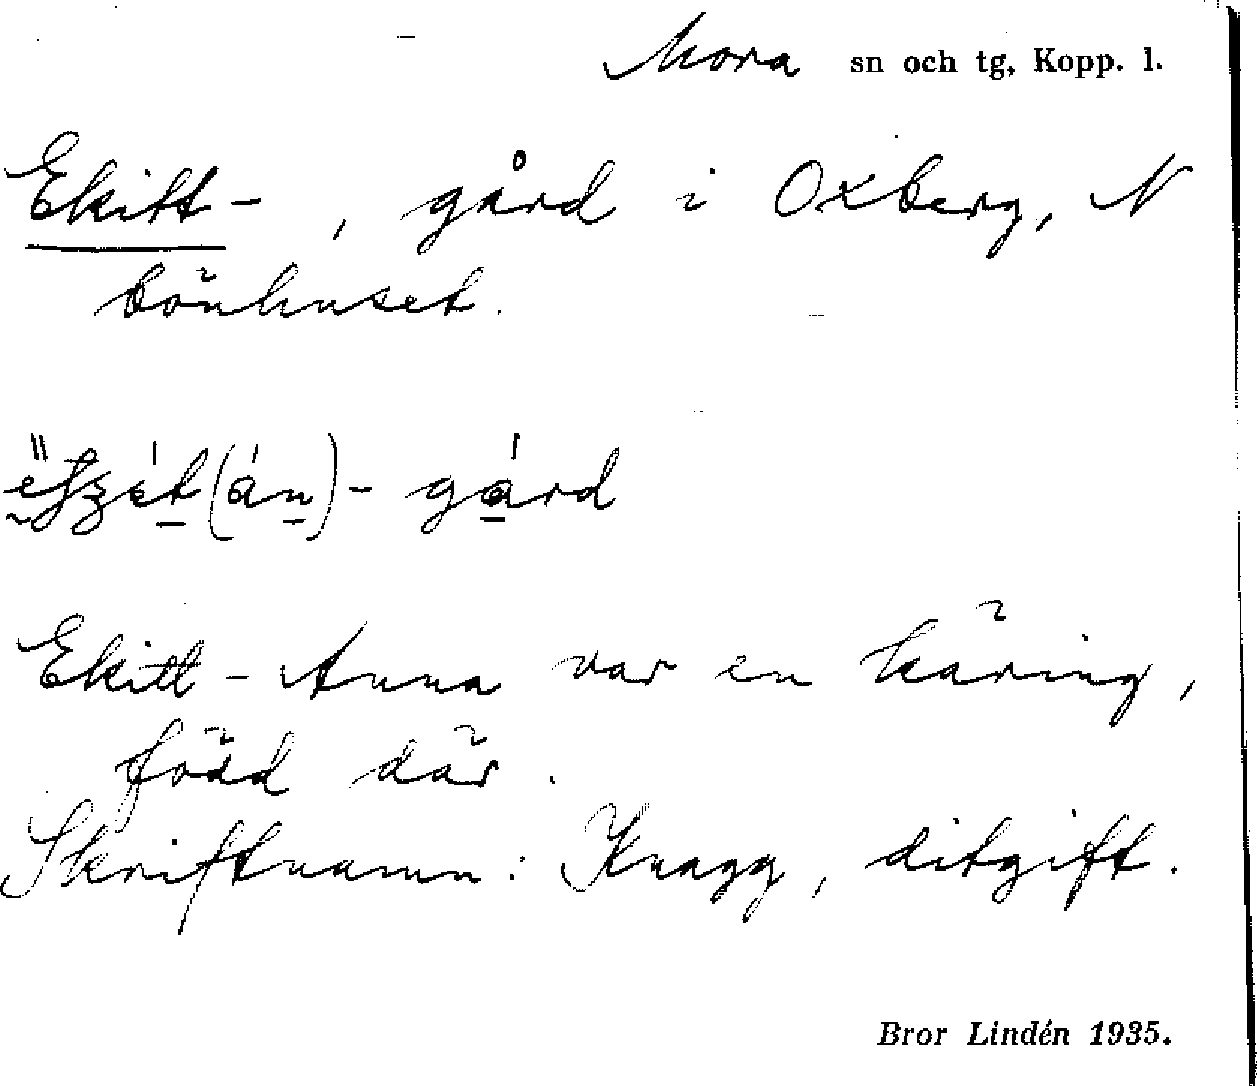 Mora sn och tg, Kopp. l.
Ekitt-, gård i Oxberg, N
bönhuset.
-gård
Ekitt-Anna var en käring,
född där.
Skriftnamn: Knagg, ditgift.
Bror Lindén 1935.